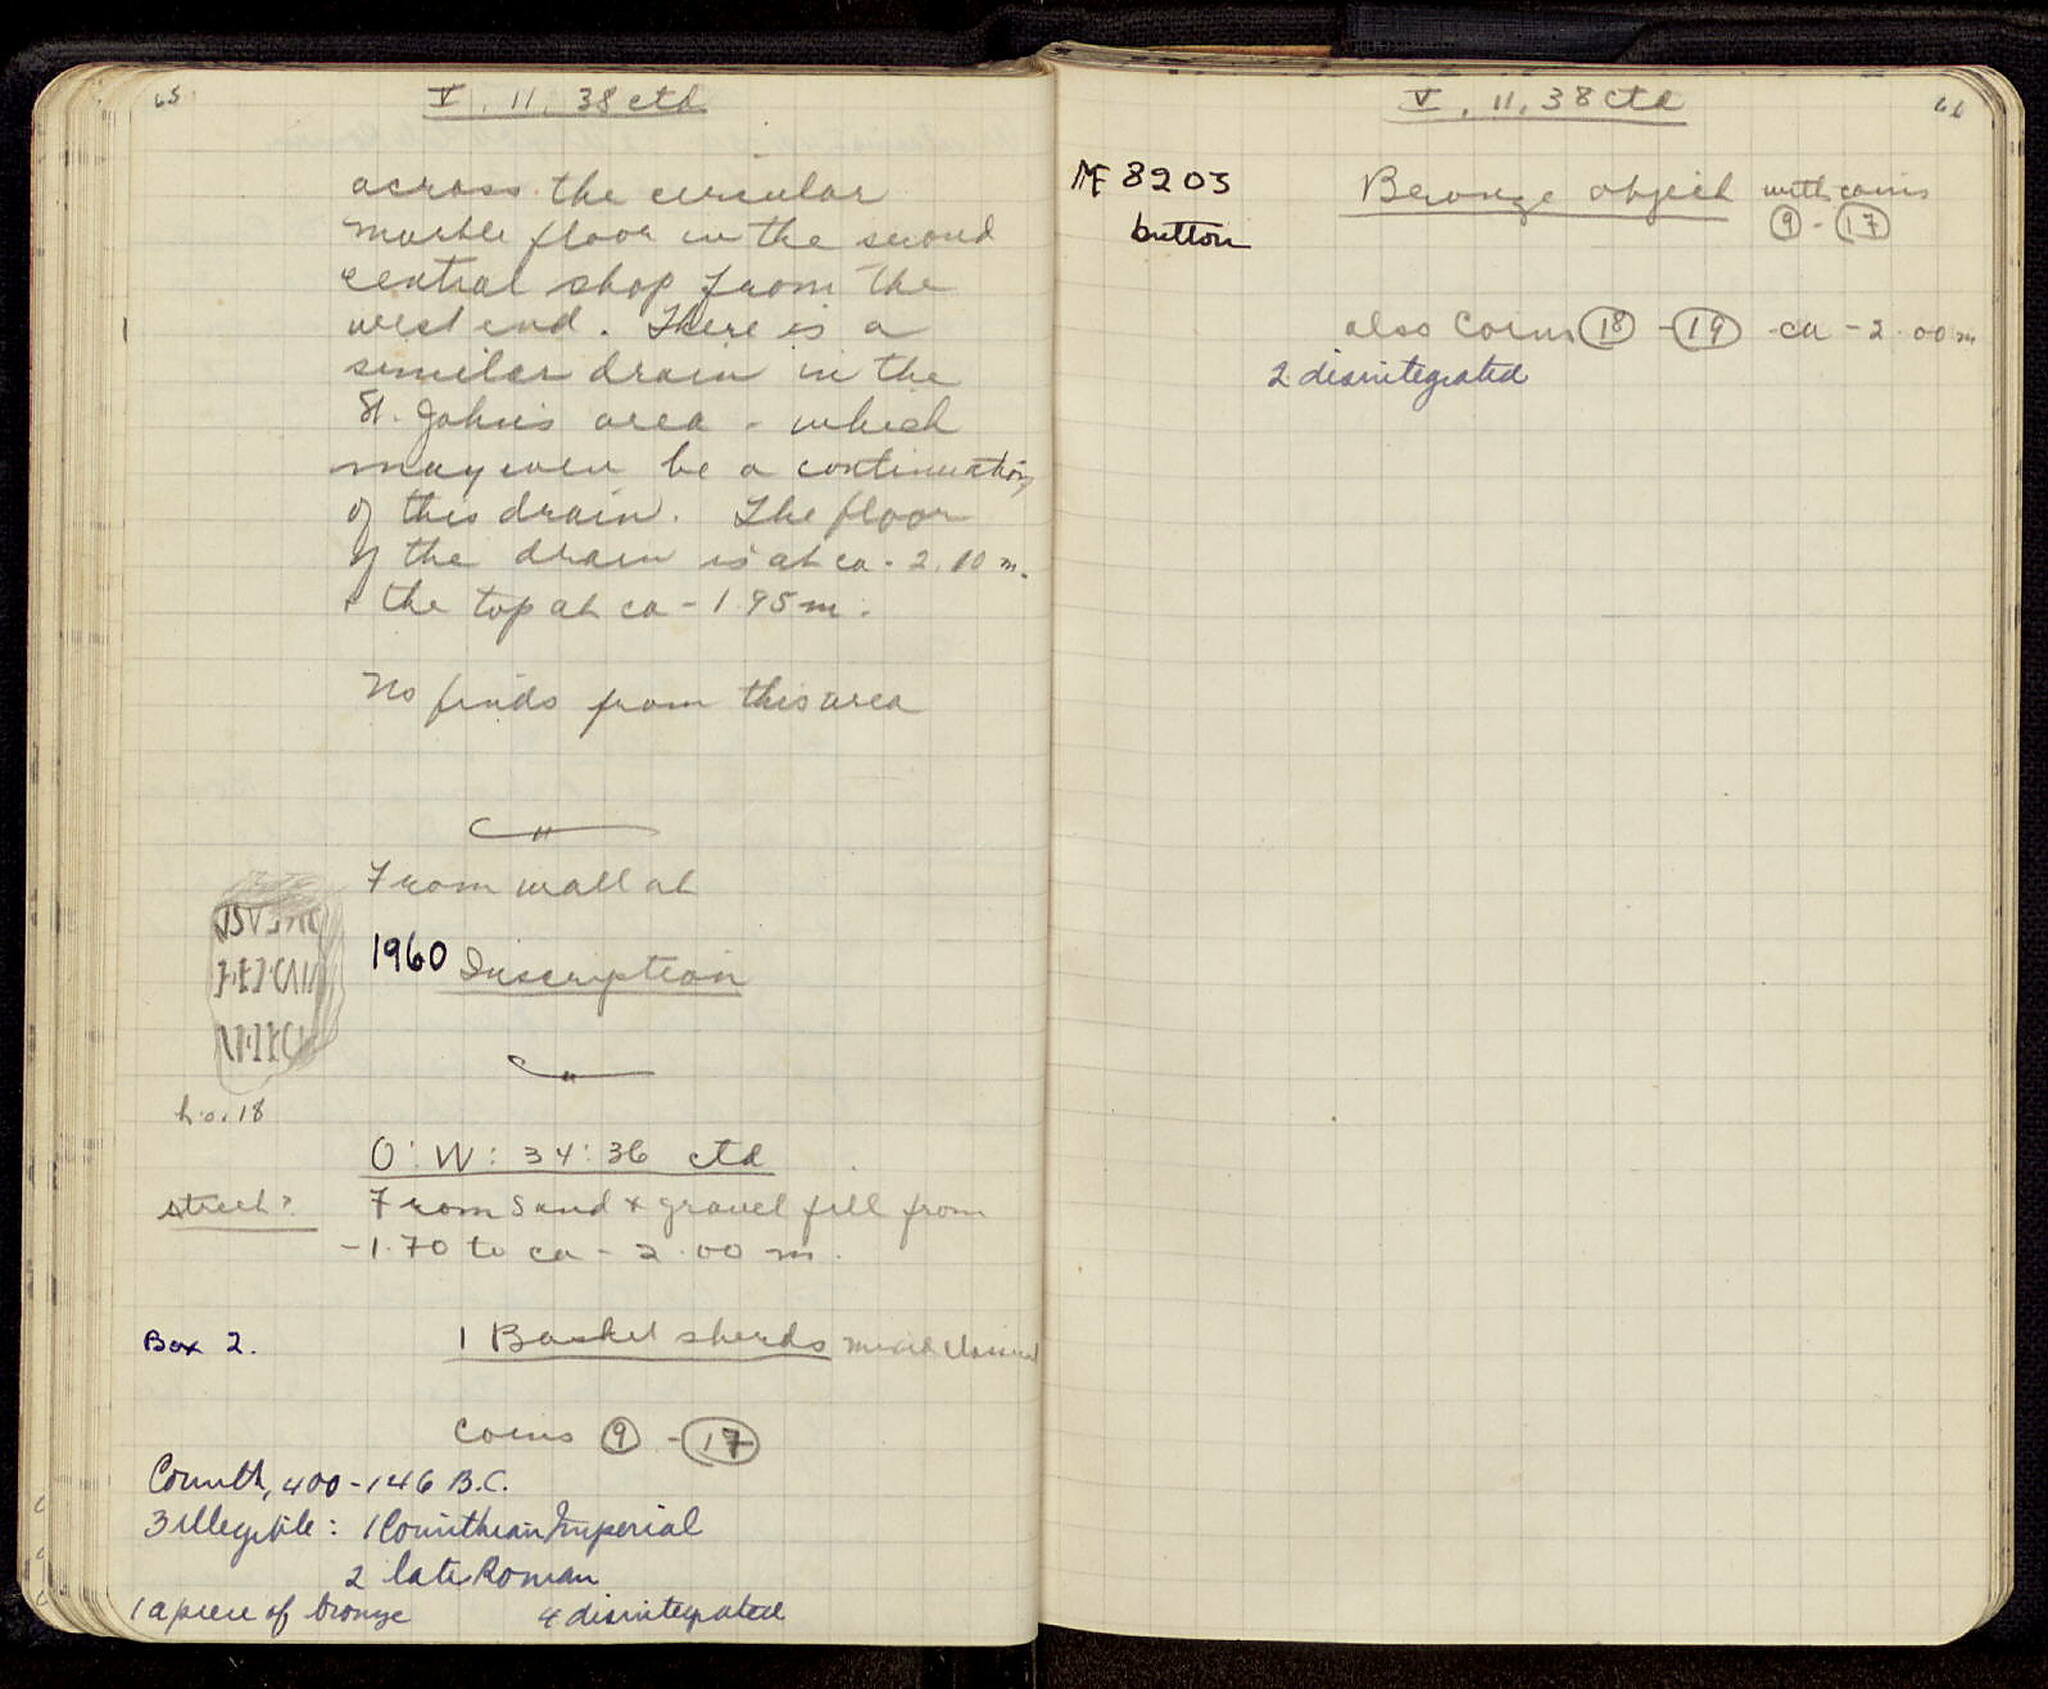 65
V. 11. 38 ctd
across the circular
marble floor in the second
central shop from the
west end. There is a
similar drain in the
St. John's area - which
may even be a continuation
of this drain. The floor
of the drain is at ca - 2.10 m.
+ the top at ca - 1.95 m.
No finds from this area
From wall at
1960 Inscription
h. o. 18
O: W: 34: 36 ctd
street?
From sand & gravel fill from
-1.70 to ca - 2.00 m.
Box 2.
1 Basket sherds mixed classical
coins 9 - 17
Corinth, 400-146 B.C.
3 illegible: 1 Corinthian Imperial
2 late Roman
1 a piece of bronze 4 disintegrated
V. 11. 38 ctd
66
MF 8203
button
Bronze object with coins
9 - 17
also Coins 18 - 19 ca - 2.00 m
2 disintegrated